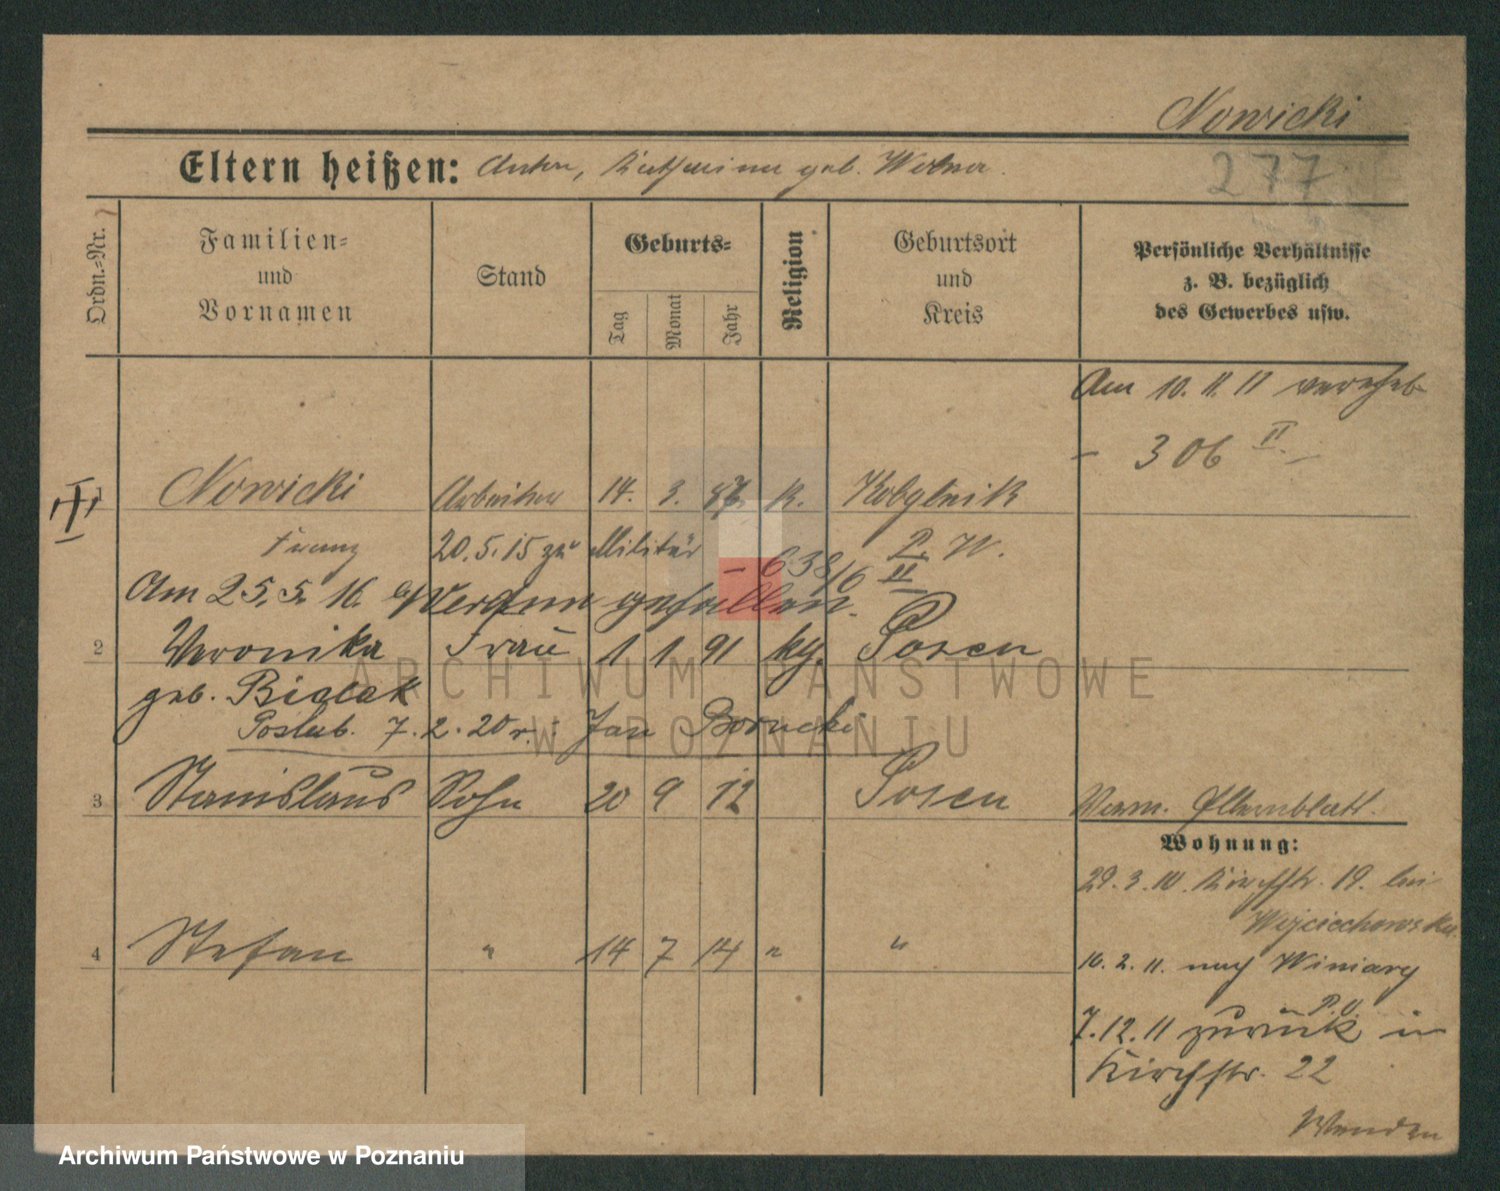 Nowicki
277
Eltern heißen: Anton, Katharina geb. Wolna.
Ordn.-Nr.
Familien-
und
Vornamen
Stand
Geburts-
Tag
Monat
Jahr
Religion
Geburtsort
und
Kreis
Persönliche Verhältnisse
z. B. bezüglich
des Gewerbes usw.
Am 10. 11. 11 vereheb
- 306 II. -
1 Nowicki Arbeiter 14. 3. 87. k. Kobylnik
Franz 20.5.15 zu Militär - 638/16 II P. W.
Am 25. 5. 16. Verdun gefallen.
2 Veronika Frau 1 1 91 kg. Posen
geb. Bialek
Poslub. 7. 2. 20 r.: Jan Borncki
3 Stanislaus Sohn 20 9 12 Posen
Verm. Elternblatt.
Wohnung:
29. 3. 10. Kirchstr. 19. bei
Wojciechowska
4 Stefan " 14 7 14 " "
16. 2. 11. nach Winiary
P.O.
7.12.11 zurück in
Kirchstr. 22
Wenden
ARCHIWUM PAŃSTWOWE
W POZNANIU
Archiwum Państwowe w Poznaniu